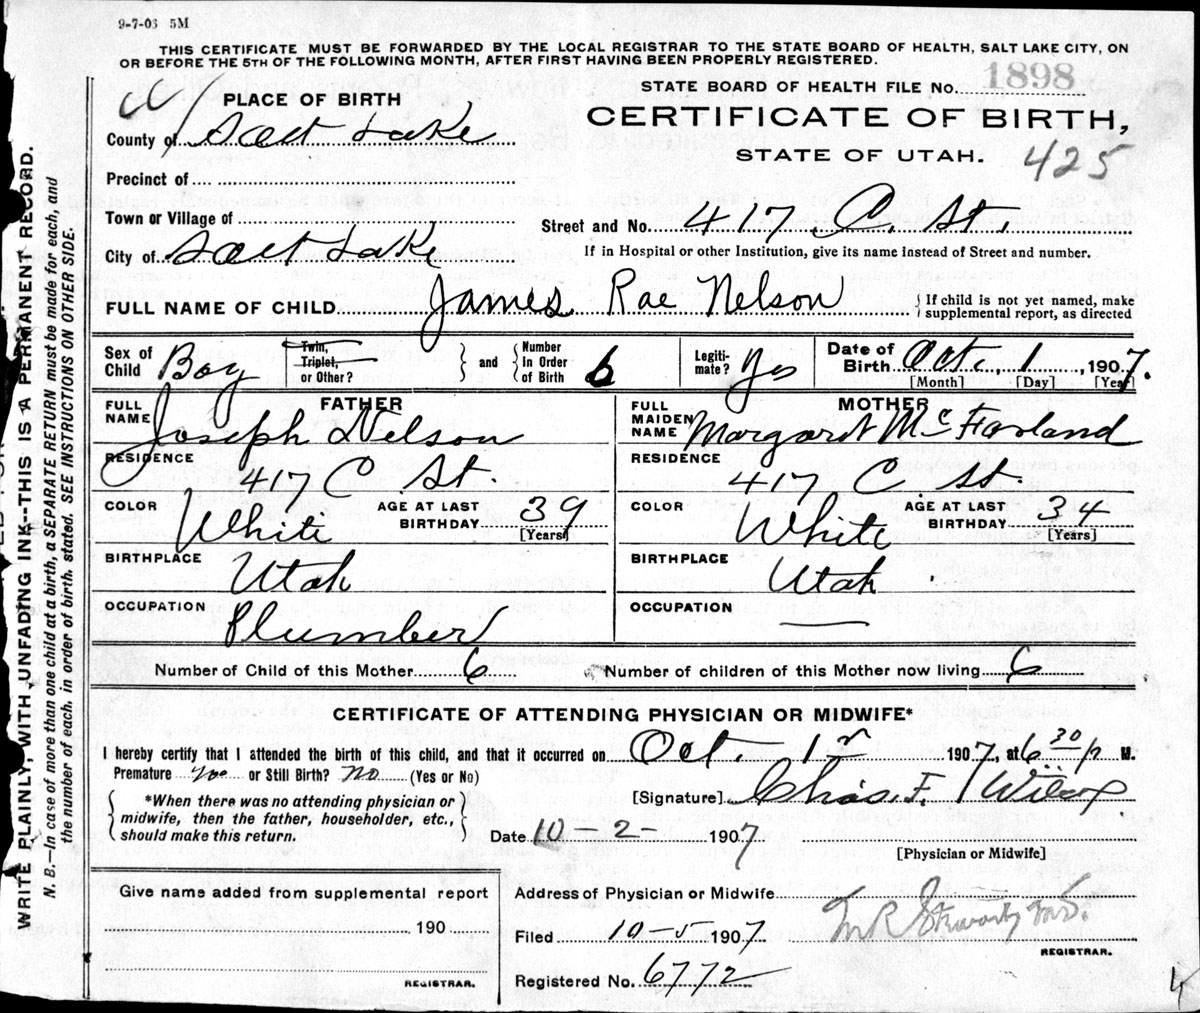 9-7-03 5M
THIS CERTIFICATE MUST BE FORWARDED BY THE LOCAL REGISTRAR TO THE STATE BOARD OF HEALTH, SALT LAKE CITY, ON
OR BEFORE THE 5TH OF THE FOLLOWING MONTH, AFTER FIRST HAVING BEEN PROPERLY REGISTERED.
STATE BOARD OF HEALTH FILE No. 1898
PLACE OF BIRTH
CERTIFICATE OF BIRTH,
County of Salt Lake
STATE OF UTAH. 425
Precinct of
Town or Village of
Street and No. 417 C. St.
City of Salt Lake
If in Hospital or other Institution, give its name instead of Street and number.
FULL NAME OF CHILD James Rae Nelson { If child is not yet named, make supplemental report, as directed
Sex of Child Boy Twin, Triplet, or Other? } and { Number in Order of Birth 6 Legiti-mate? Yes Date of Birth Oct. 1, 1907.
[Month] [Day] [Year]
FATHER
FULL NAME Joseph Nelson
RESIDENCE 417 C St.
COLOR White AGE AT LAST BIRTHDAY 39 [Years]
BIRTHPLACE Utah
OCCUPATION Plumber
MOTHER
FULL MAIDEN NAME Margaret McFarland
RESIDENCE 417 C St.
COLOR White AGE AT LAST BIRTHDAY 34 [Years]
BIRTHPLACE Utah
OCCUPATION —
Number of Child of this Mother 6 Number of children of this Mother now living 6
CERTIFICATE OF ATTENDING PHYSICIAN OR MIDWIFE*
I hereby certify that I attended the birth of this child, and that it occurred on Oct. 1 1907, at 6 30 P M.
Premature no or Still Birth? no (Yes or No)
{ *When there was no attending physician or midwife, then the father, householder, etc., should make this return. }
[Signature] Chas. F. Wilcox
Date 10-2- 1907
[Physician or Midwife]
Give name added from supplemental report
190
REGISTRAR.
Address of Physician or Midwife
Filed 10-5- 1907 M.D.
REGISTRAR.
Registered No. 6772
WRITE PLAINLY, WITH UNFADING INK--THIS IS A PERMANENT RECORD.
N. B.—In case of more than one child at a birth, a SEPARATE RETURN must be made for each, and
the number of each, in order of birth, stated. SEE INSTRUCTIONS ON OTHER SIDE.